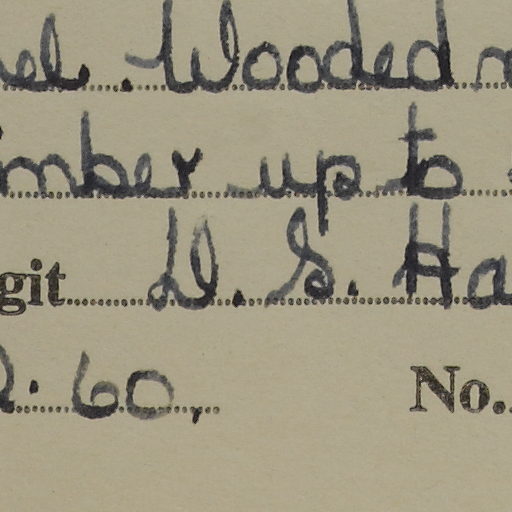 el. Wooded
mber up to
git D. S. Ha
2. 60, No.